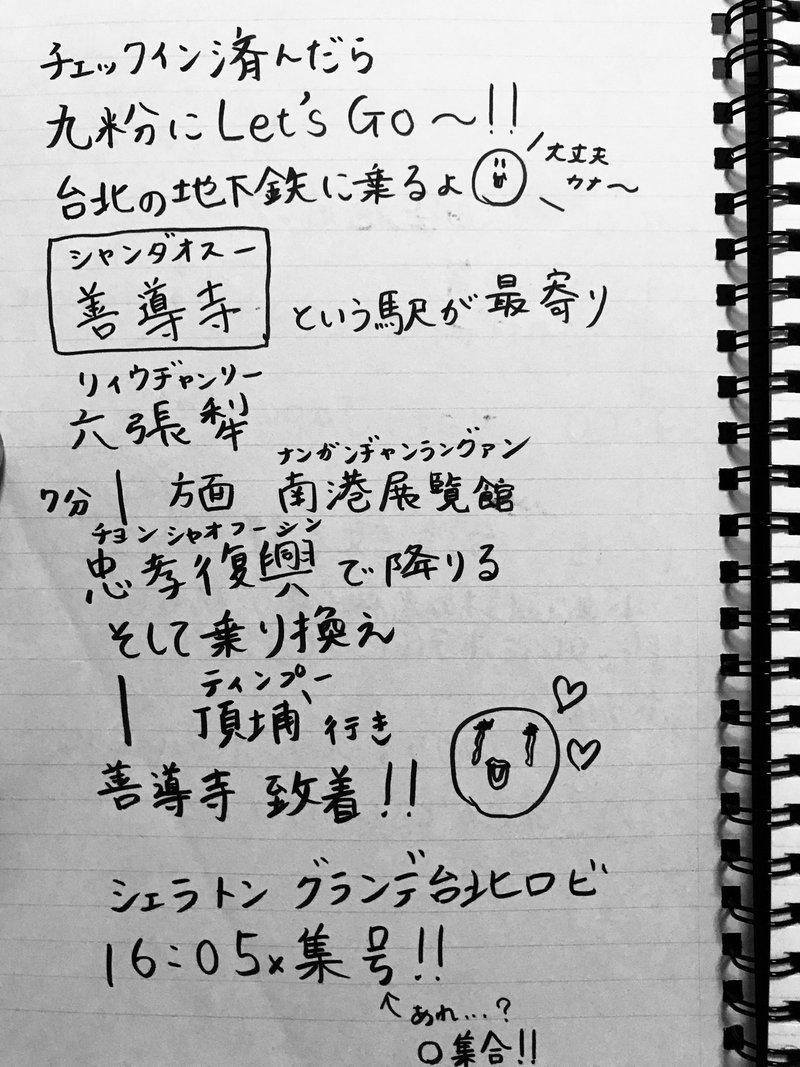 チェックイン済んだら
九粉にLet's Go〜!!
台北の地下鉄に乗るよ
大丈夫
カナ〜
シャンダオスー
善導寺 という駅が最寄り
リィウヂャンリー
六張犂
ナンガンヂャンラングァン
7分 | 方面 南港展覧館
チョンシャオフーシン
忠孝復興で降りる
そして乗り換え
ティンプー
| 頂埔行き
善導寺 致着!!
シェラトン グランデ台北ロビ
16:05×集号!!
↑あれ…?
○集合!!